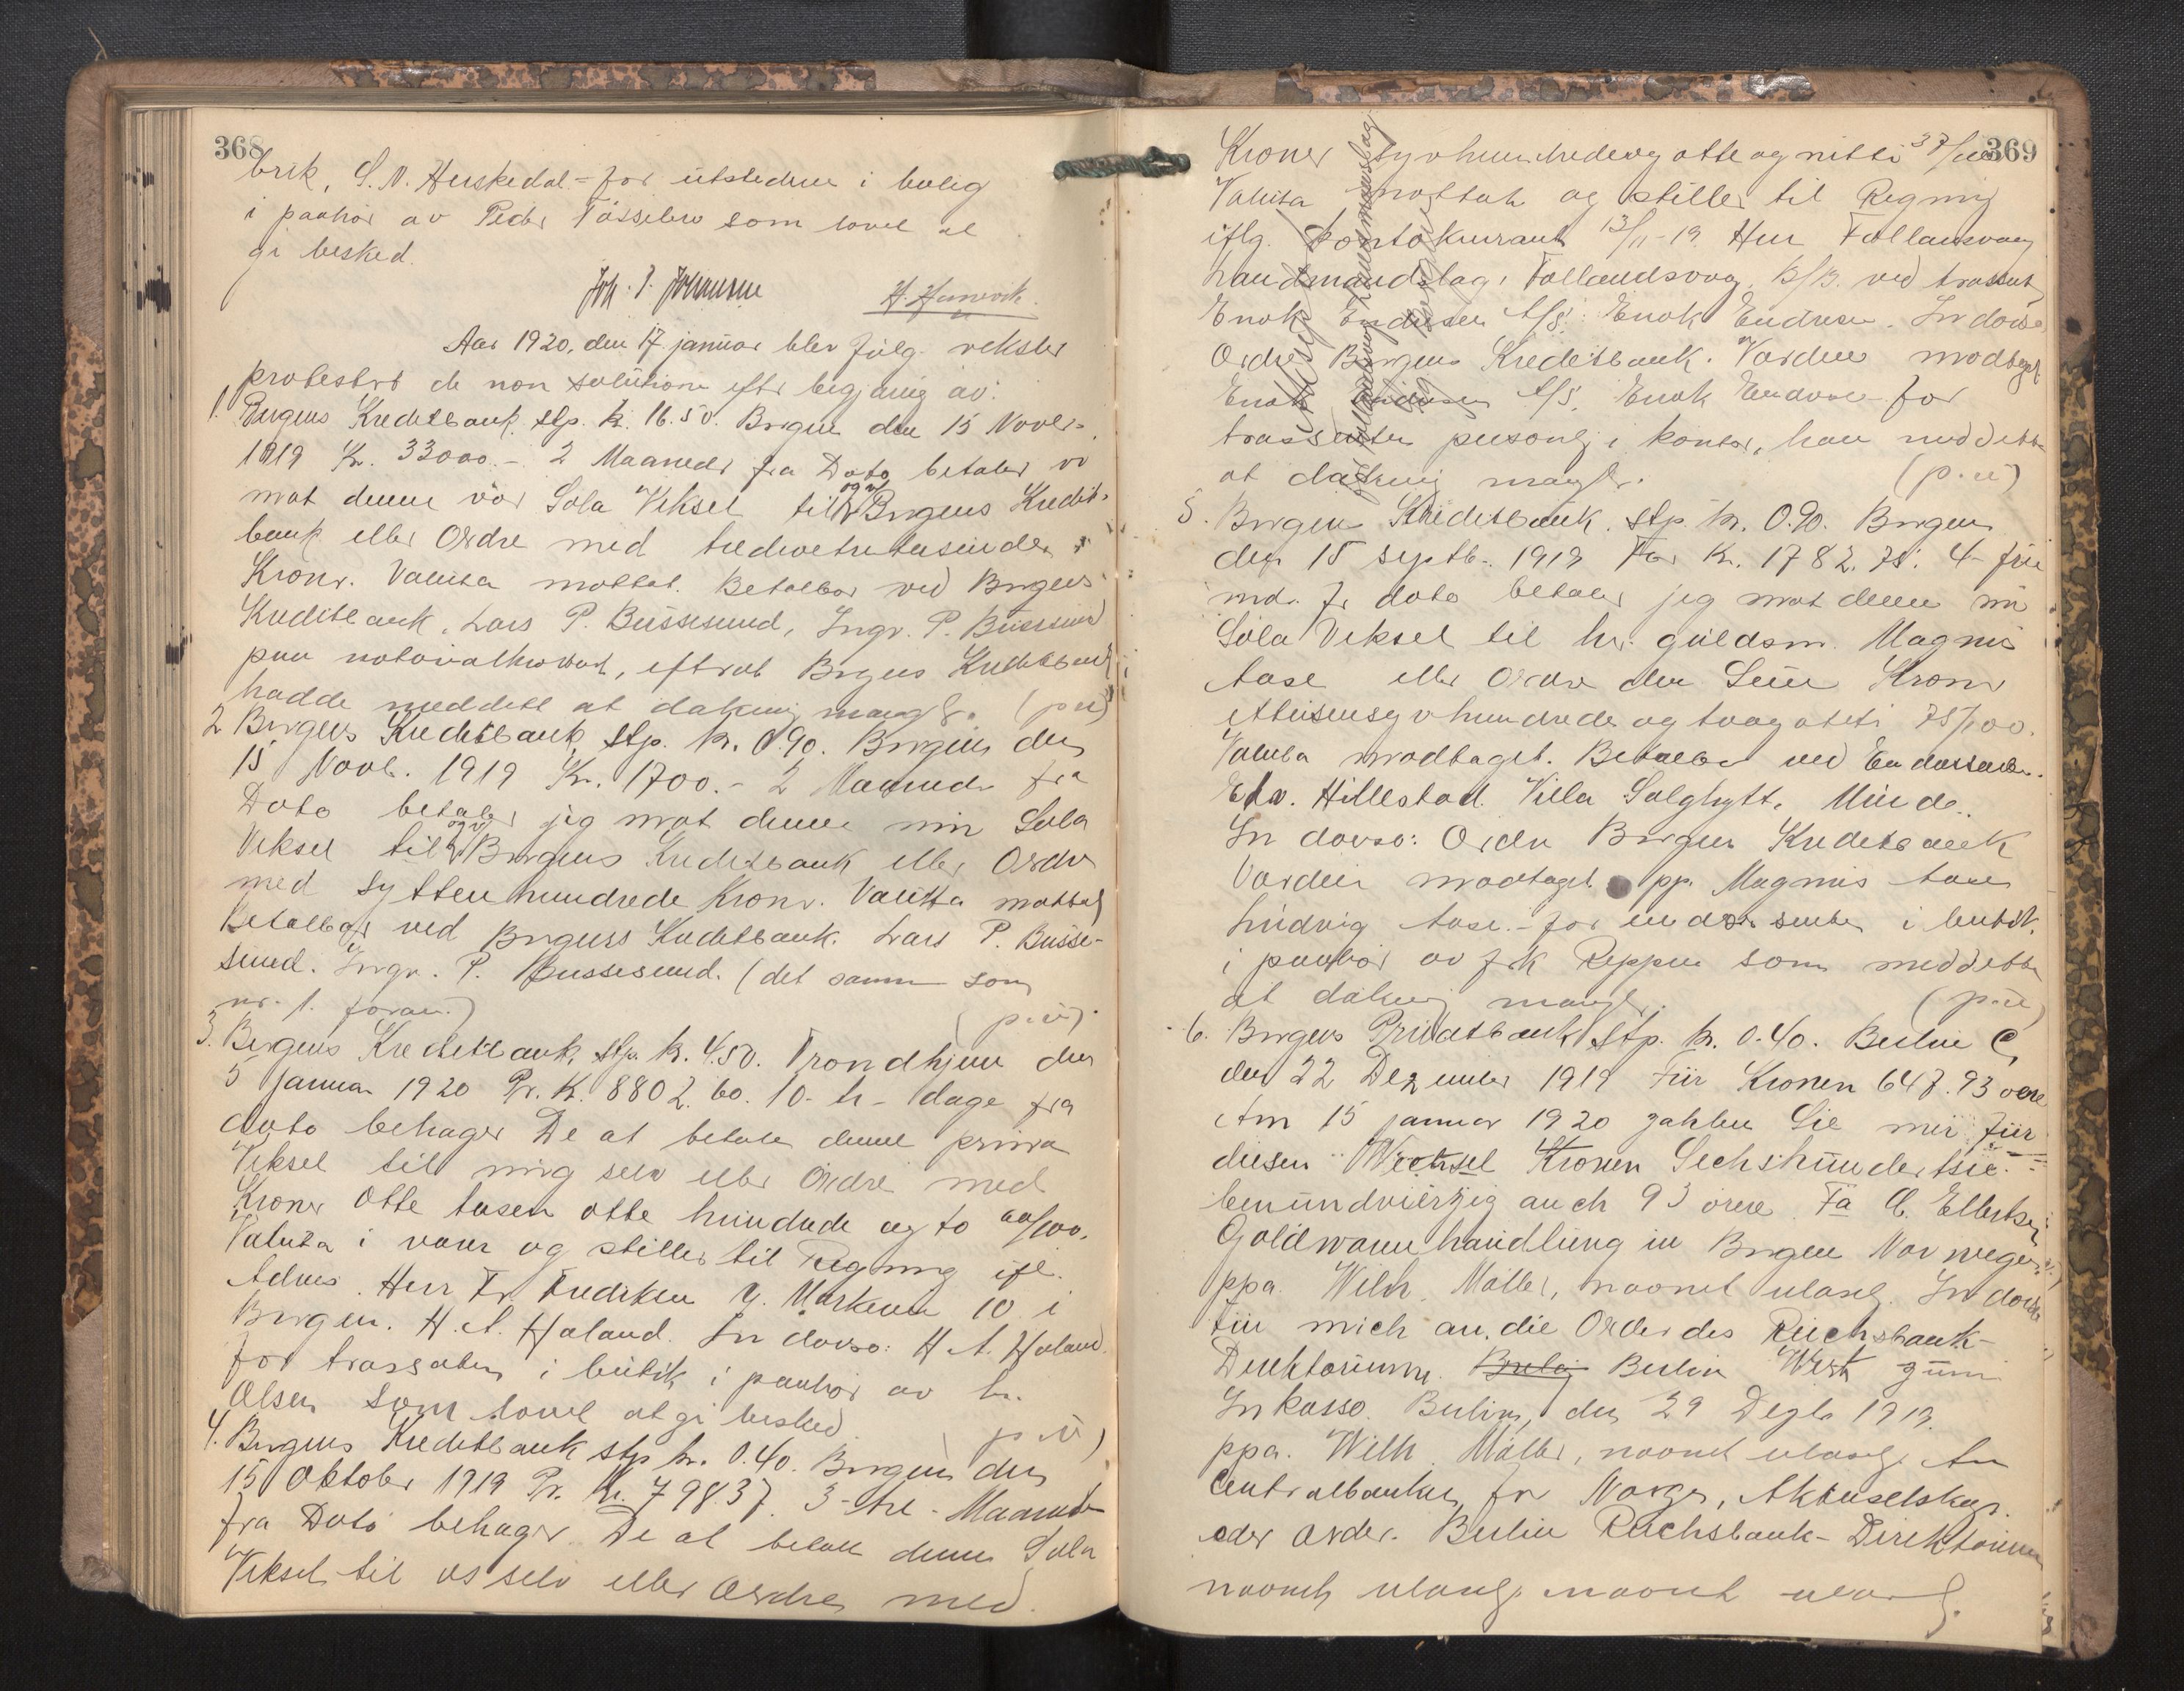 368
brik, S. N. Herskedal - for utstederen i bolig
i paahør av Peder Tösselen som lovet at
gi besked.
Joh. P. Johansen
Aar 1920, den 17 januar blev følg. veksler
protestert de non solutione efter begjæring av:
1. Bergens Kreditbank, stp. kr. 16.50. Bergen den 15 Novbr.
1919 Kr. 33000.- 2 Maaneder fra Dato betaler vi
mot denne vor Sola Veksel til Bergens Kredit-
bank eller Ordre med tredvetretusinde
Kroner. Valuta mottat. Betalbar ved Bergens
Kreditbank, Lars P. Bussesund, Ingv. P. Bussesund
paa notarialkontoret, efterat Bergens Kreditbank
hadde meddelt at dækning mangler. (p.u)
2 Bergens Kreditbank, stp. kr. 0.90. Bergen den
15 Novb. 1919 Kr. 1700.- 2 Maaneder fra
Dato betaler jeg mot denne min Sola
Veksel til Bergens Kreditbank eller Ordre
med Sytten hundrede Kroner. Valuta mottat
Betalbar ved Bergens Kreditbank. Lars P. Busse-
sund. Ingv. P. Bussesund. (det samme som
nr. 1. foran.) (p.u).
3. Bergens Kreditbank, stp. kr. 4.50. Trondhjem den
5 januar 1920 Pr. K. 8802.60. 10 - ti - dage fra
dato behager De at betale denne prima
Veksel til mig selv eller Ordre med
Kroner Otte tusen otte hundrede og to 60/100.
Valuta i varer og stilles til Regning ifl.
Advis. Herr Fr. Fredriksen N. Markevei 10 i
Bergen. H. A. Haland. In dorso: H. A. Haland.
for trassaten i butik i paahør av hr.
Olsen som lovet at gi besked. (p.u)
4. Bergens Kreditbank stp. kr. 0.40. Bergen den
15 Oktober 1919 Pr. Kr. 798.37. 3 - tre - Maaneder
fra Dato behager De at betale denne Sola
Veksel til os selv eller Ordre med
369
Kroner syvhundredeogotteognitti 37/100
Valuta mottat og stilles til Regning
iflg. kontokurant 13/11-19. Herr Follandsvaag
handmandslag, Follandsvaag B/B. ved trassent
Enok Endresen A/S. Enok Endresen. In dorso
Ordre Bergens Kreditbank. Værdien modtaget
Enok Endresen A/S. Enok Endresen for
trassenten personlig i kontor, han meddelte
at dækning mangler. (p.u)
5. Bergens Kreditbank. stp. kr. 0.90. Bergen
den 15 septb. 1919 For Kr. 1782.75. 4 - fire
md. fr. dato betaler jeg mot denne min
Sola Veksel til hr. guldsm. Magnus
Aase eller Ordre den Sum Kroner
ettusensyvhundrede og toogotteti 75/100.
Valuta modtaget. Betalbar ved Endossenten.
Edv. Hillestad. Villa Solghytt. Minde.
In dorso: Ordre Bergens Kreditbank
Værdien modtaget pp. Magnus Aase
Ludvig Aase. - for endossenten i butik.
i paahør av frk Reppen som meddelte
at dækning mangler. (p.u)
6. Bergens Privatbank stp. kr. 0.40. Berlin C,
den 22 Dezember 1919 Für Kronen 647.93 oere
Am 15 januar 1920 zahlen Sie mir für
diesen Wechsel Kronen Sechshundertsie-
benundvierzig auch 93 oere. Fa A. Ellertsen
Goldwarenhandlung in Bergen Norwegen.
ppa. Wilh. Möller, navnet ulæselig. In dorso
Für mich an die Order des Reichsbank-
Direktoriums. Berlin Wert zum
Inkasso. Berlin, den 29 Dezb. 1919.
ppa. Wilh. Möller, navnet ulæselig. An
Centralbanken for Norge, Aktieselskap.
oder Order. Berlin Reichsbank-Direktorium
navnet ulæselig navnet ulæselig.